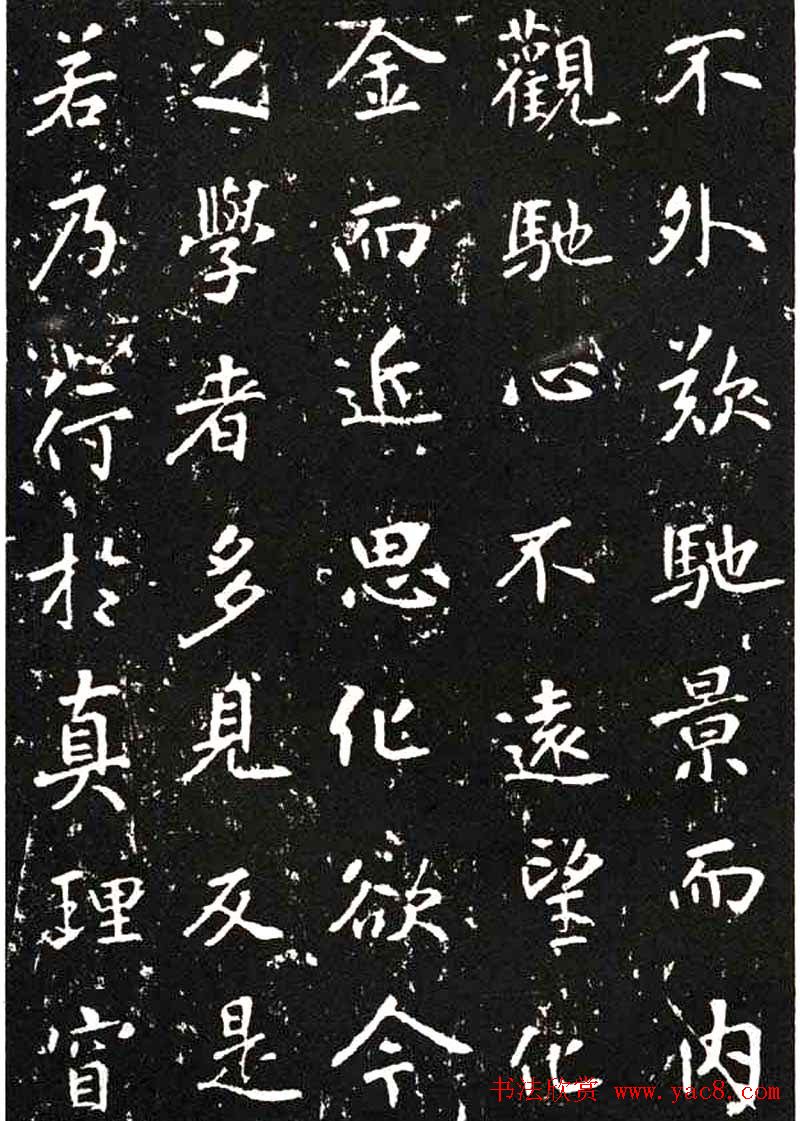 不外欻馳景而内
觀馳心不遠望化
金而近思化欲今
之學者多見反是
若乃苻於真理窅
书法欣赏 www.yac8.com